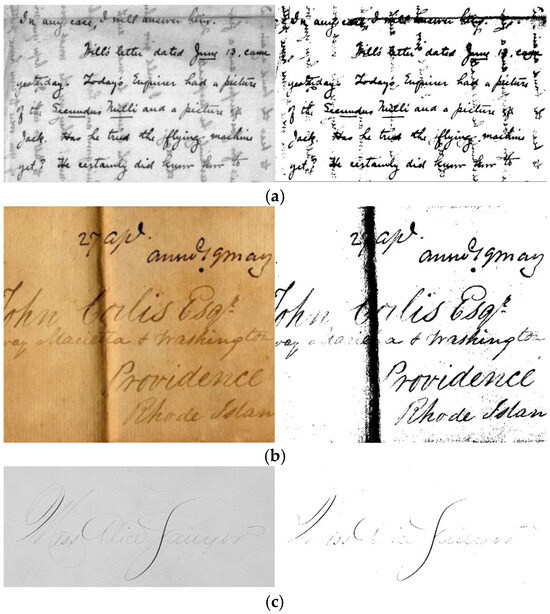 In any case, I will answer hers.
Will's letter dated June 13, came
yesterday. Today's Enquirer had a picture
of the Secundus Nulli and a picture
Jack. Has he tried the flying machine
yet? He certainly did know how to
In any case, I will answer hers.
Will's letter dated June 13, came
yesterday. Today's Enquirer had a picture
of the Secundus Nulli and a picture
Jack. Has he tried the flying machine
yet? He certainly did know how to
(a)
27 apl.
anno 19 may
John Corlis Esqr
way Marietta & Washington
Providence
Rhode Islan
27 apl.
anno 19 may
John Corlis Esqr
Marietta & Washington
Providence
Rhode Islan
(b)
Miss Alice Sawyer
Miss Alice Sawyer
(c)